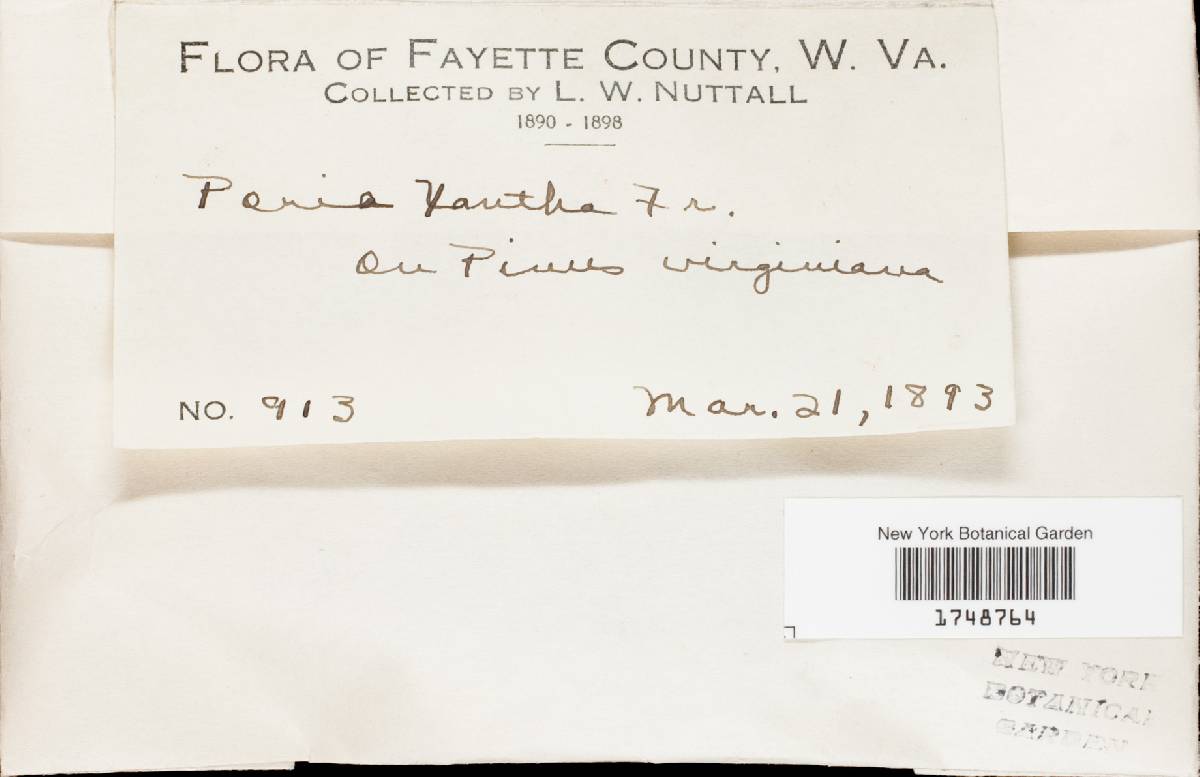 FLORA OF FAYETTE COUNTY, W. VA.
COLLECTED BY L. W. NUTTALL
1890 - 1898
Poria Xantha Fr.
On Pinus virginiana
NO. 913
Mar. 21, 1893
New York Botanical Garden
1748764
NEW YORK
BOTANICAL
GARDEN